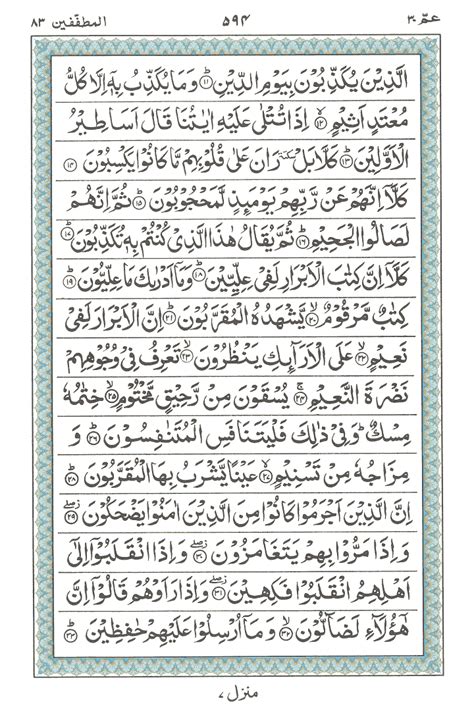 عمّ ٣٠ ٥٩٤ المطفّفين ٨٣
الَّذِيْنَ يُكَذِّبُوْنَ بِيَوْمِ الدِّيْنِ ﴿١١﴾ وَمَا يُكَذِّبُ بِهٖٓ اِلَّا كُلُّ
مُعْتَدٍ اَثِيْمٍ ﴿١٢﴾ اِذَا تُتْلٰى عَلَيْهِ اٰيٰتُنَا قَالَ اَسَاطِيْرُ
الْاَوَّلِيْنَ ﴿١٣﴾ كَلَّا بَلْ ٚ رَانَ عَلٰى قُلُوْبِهِمْ مَّا كَانُوْا يَكْسِبُوْنَ ﴿١٤﴾
كَلَّآ اِنَّهُمْ عَنْ رَّبِّهِمْ يَوْمَئِذٍ لَّمَحْجُوْبُوْنَ ﴿١٥﴾ ثُمَّ اِنَّهُمْ
لَصَالُوا الْجَحِيْمِ ﴿١٦﴾ ثُمَّ يُقَالُ هٰذَا الَّذِيْ كُنْتُمْ بِهٖ تُكَذِّبُوْنَ ﴿١٧﴾
كَلَّآ اِنَّ كِتٰبَ الْاَبْرَارِ لَفِيْ عِلِّيِّيْنَ ﴿١٨﴾ وَمَآ اَدْرٰىكَ مَا عِلِّيُّوْنَ ﴿١٩﴾
كِتٰبٌ مَّرْقُوْمٌ ﴿٢٠﴾ يَّشْهَدُهُ الْمُقَرَّبُوْنَ ﴿٢١﴾ اِنَّ الْاَبْرَارَ لَفِيْ
نَعِيْمٍ ﴿٢٢﴾ عَلَى الْاَرَآئِكِ يَنْظُرُوْنَ ﴿٢٣﴾ تَعْرِفُ فِيْ وُجُوْهِهِمْ
نَضْرَةَ النَّعِيْمِ ﴿٢٤﴾ يُسْقَوْنَ مِنْ رَّحِيْقٍ مَّخْتُوْمٍ ﴿٢٥﴾ خِتٰمُهٗ
مِسْكٌ وَفِيْ ذٰلِكَ فَلْيَتَنَافَسِ الْمُتَنَافِسُوْنَ ﴿٢٦﴾ وَ
مِزَاجُهٗ مِنْ تَسْنِيْمٍ ﴿٢٧﴾ عَيْنًا يَّشْرَبُ بِهَا الْمُقَرَّبُوْنَ ﴿٢٨﴾
اِنَّ الَّذِيْنَ اَجْرَمُوْا كَانُوْا مِنَ الَّذِيْنَ اٰمَنُوْا يَضْحَكُوْنَ ﴿٢٩﴾
وَاِذَا مَرُّوْا بِهِمْ يَتَغَامَزُوْنَ ﴿٣٠﴾ وَاِذَا انْقَلَبُوْٓا اِلٰٓى
اَهْلِهِمُ انْقَلَبُوْا فَكِهِيْنَ ﴿٣١﴾ وَاِذَا رَاَوْهُمْ قَالُوْٓا اِنَّ
هٰٓؤُلَآءِ لَضَآلُّوْنَ ﴿٣٢﴾ وَمَآ اُرْسِلُوْا عَلَيْهِمْ حٰفِظِيْنَ ﴿٣٣﴾
منزل ٧